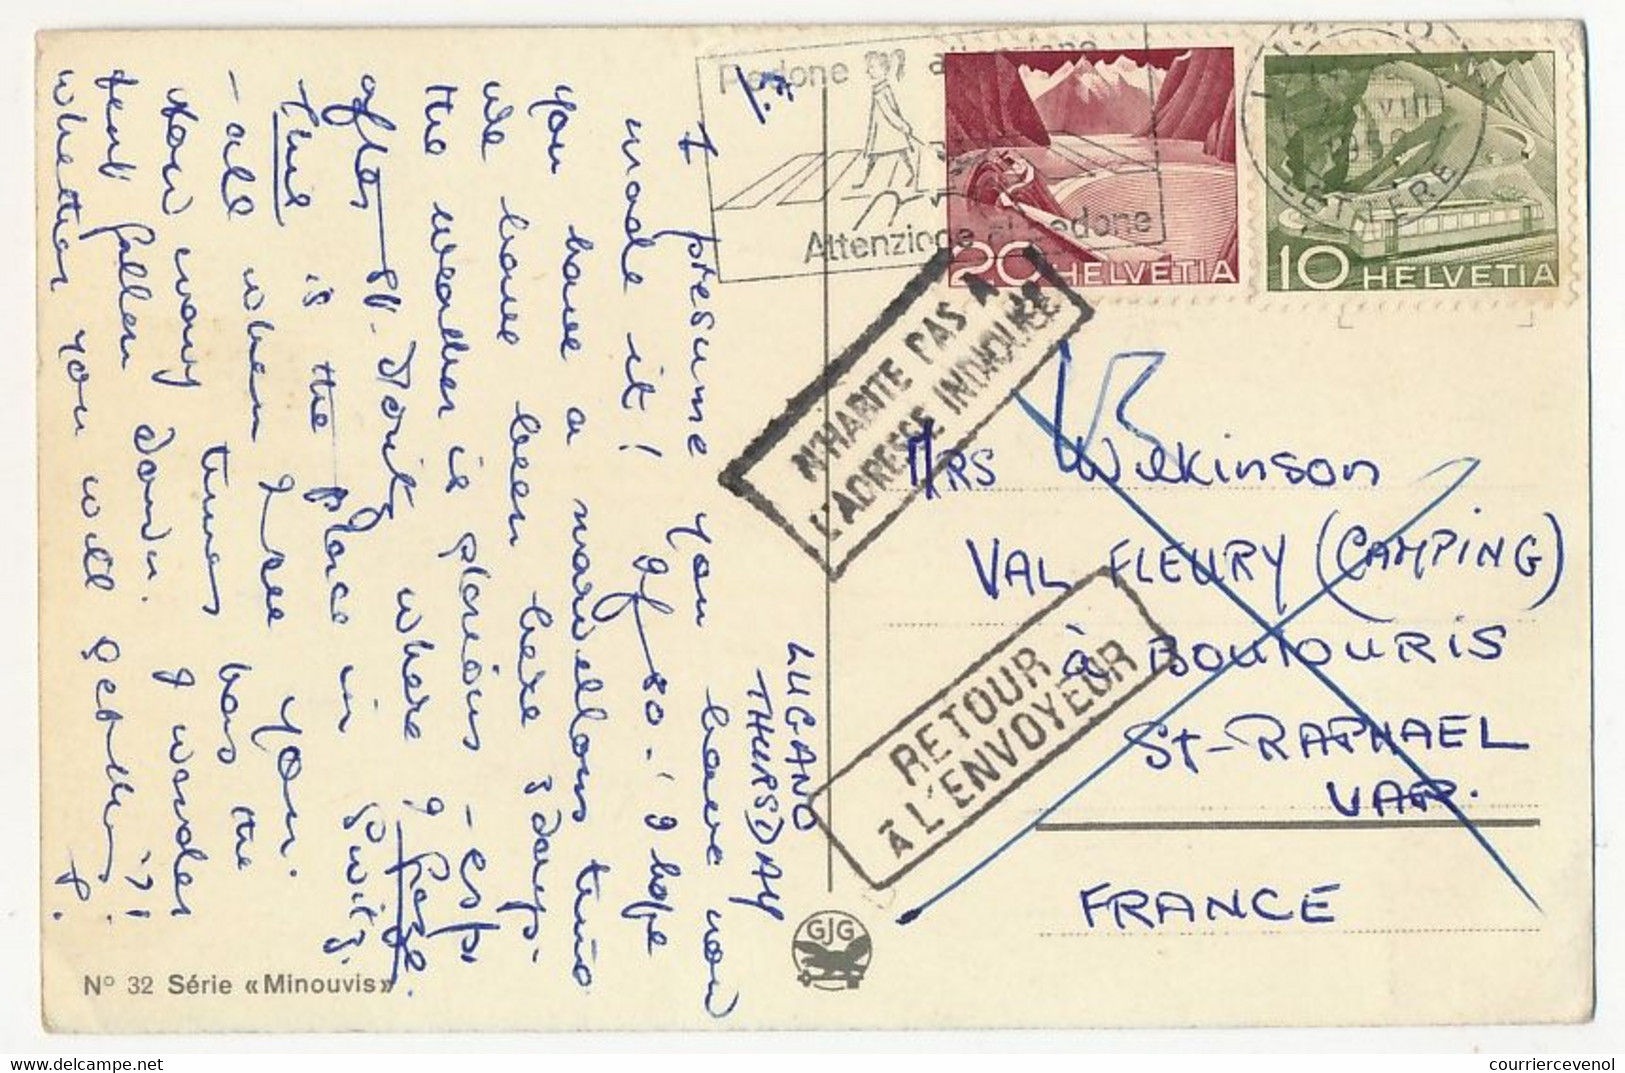 LUGANO
THURSDAY
I presume you have now
made it! If so! I hope
you have a marvellous time
We have been here 3 days.
the weather is glorious - esp.
after St. Moritz where I froze.
This is the place in Switz.
- all when I see you.
How many times has the
tent fallen down. I wonder
whether you will get this!?!
P.
Nº 32 Série «Minouvis»
GJG
Pedone attenzione
Attenzione al pedone
20 HELVETIA
10 HELVETIA
N'HABITE PAS A
L'ADRESSE INDIQUÉE
RETOUR
À L'ENVOYEUR
MRS Wilkinson
VAL FLEURY (CAMPING)
à BOULOURIS
ST-RAPHAEL
VAR.
FRANCE
courriercevenol